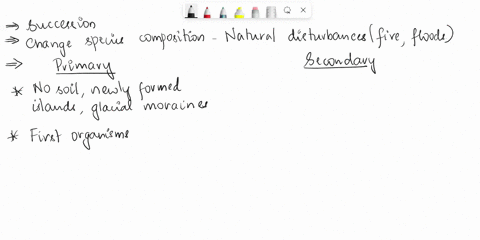 ⇒ Succession
⇒ Change species composition - Natural disturbances (fire, floods)
⇒ Primary Secondary
* No soil, newly formed
islands, glacial moraines
* First organisms